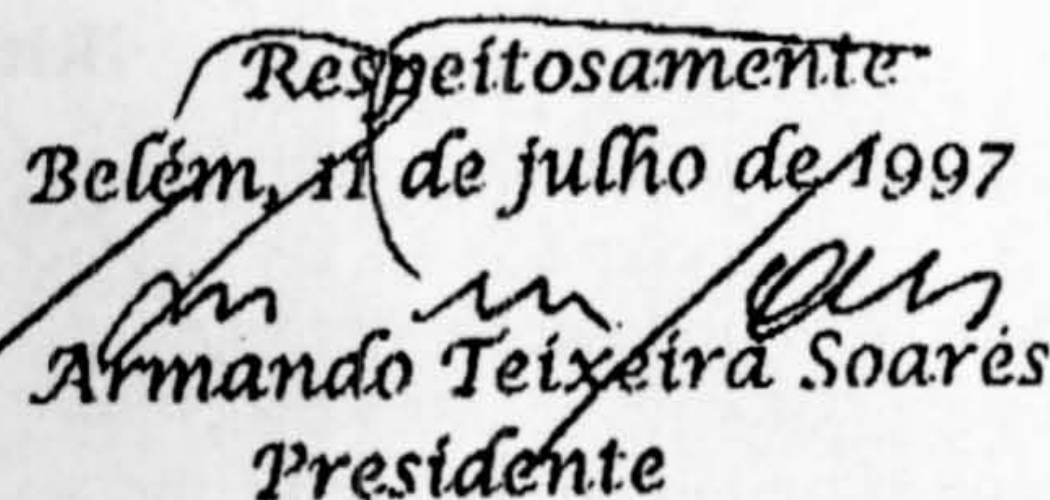 Respeitosamente
Belém, 11 de julho de 1997
Armando Teixeira Soares
Presidente